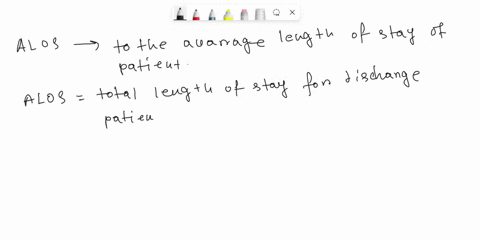 ALOS → to the avarrage length of stay of
patient.
ALOS = total length of stay for discharge
patien